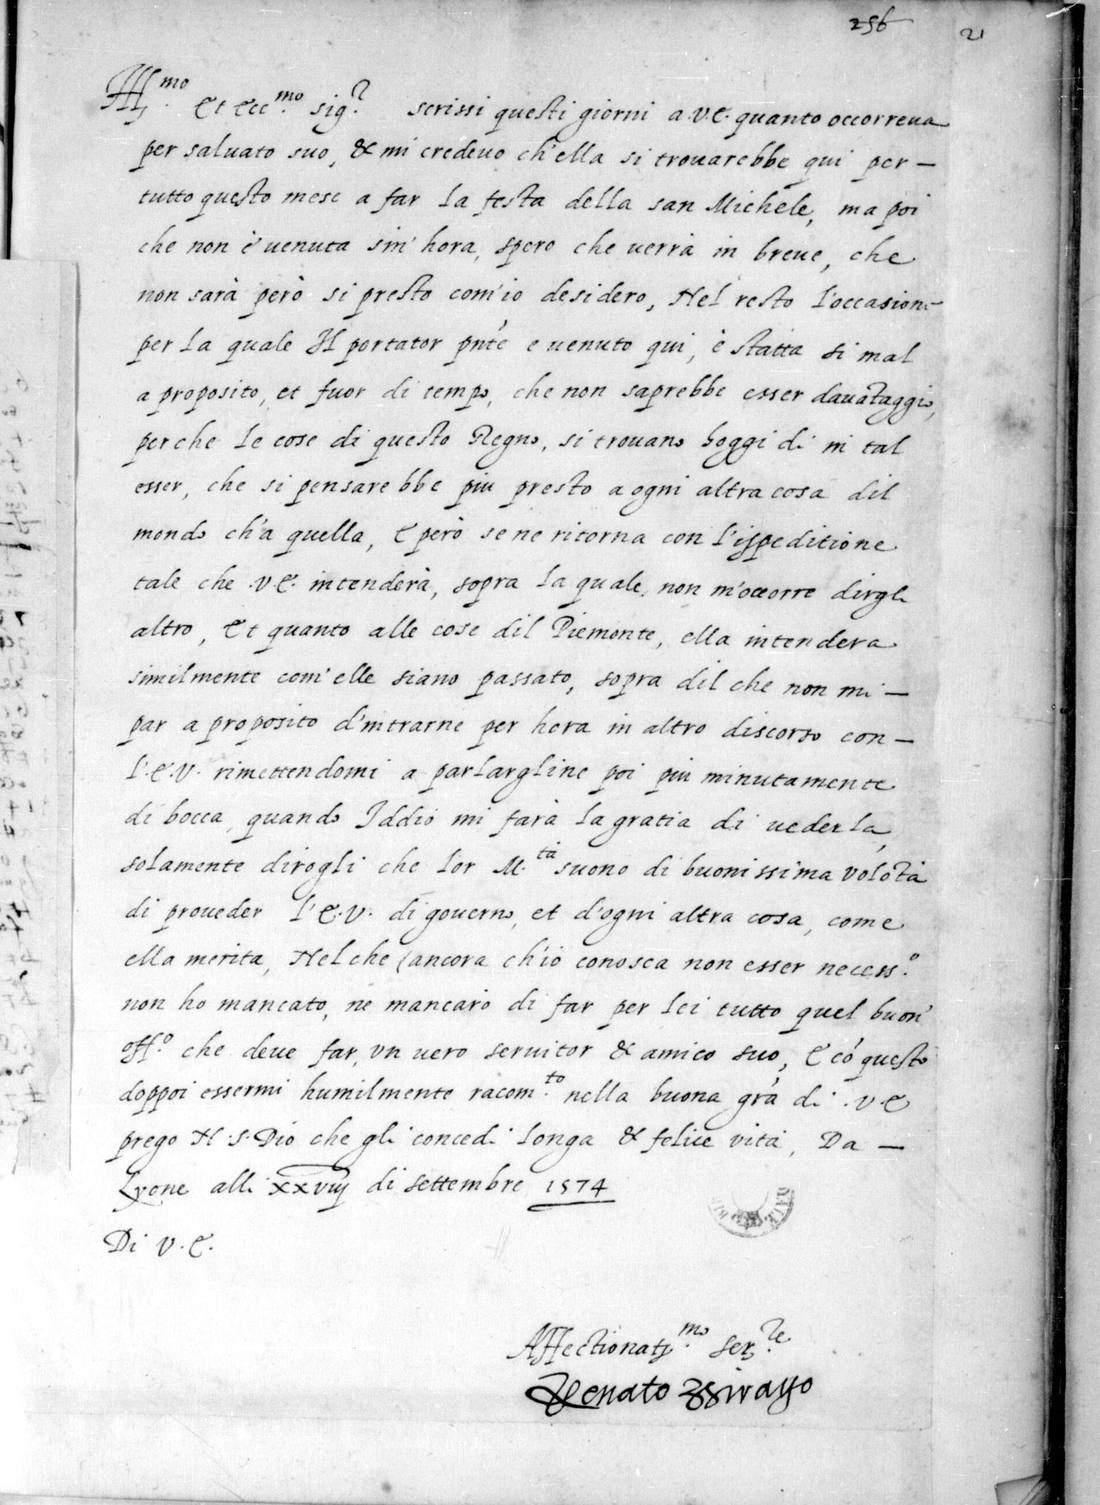 256 21
Ill.mo Et Ecc.mo sig.r scrissi questi giorni a .V.E. quanto occorreua
per saluato suo, & mi credeuo ch'ella si trouarebbe qui per –
tutto questo mese a far la festa della san Michele, ma poi
che non è uenuta sin' hora, spero che uerrà in breue, che
non sarà però si presto com'io desidero, Nel resto l'occasion
per la quale Il portator pnte e uenuto qui, è statta si mal
a proposito, et fuor di tempo, che non saprebbe esser dauātaggio,
perche le cose di questo Regno, si trouano hoggi di in tal
esser, che si pensarebbe piu presto a ogni altra cosa dil
mondo ch'a quella, E però se ne ritorna con l'ispeditione
tale che .V.E. intenderà, sopra la quale non m'occorre dirgli
altro, Et quanto alle cose dil Piemonte, ella intendera
similmente com' elle siano passato, sopra dil che non mi –
par a proposito d'intrarne per hora in altro discorso con –
l'.E.V. rimettendomi a parlargline poi piu minutamente
di bocca, quando Iddio mi farà la gratia di uederla,
solamente dirogli che lor M.tà suono di buonissima volōtà
di proueder l'E.V. di gouerno, et d'ogni altra cosa, come
ella merita, Nel che (ancora ch'io conosca non esser necess.o
non ho mancato, ne mancarò di far per lei tutto quel buon'
off.o che deue far, vn uero seruitor & amico suo, E cō questo
doppoi essermi humilmente racom.to nella buona grā di .V.E
prego N S. Dio che gli concedi longa & felice vita, Da –
Lyone alli xxviij di settembre 1574
Di V.E.
Affectionatiss.mo ser.re
Renato Birago